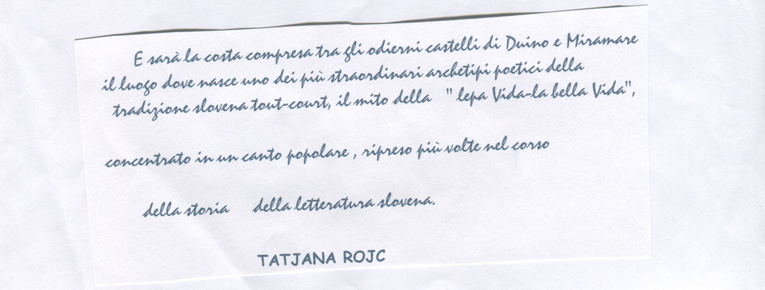 E sarà la costa compresa tra gli odierni castelli di Duino e Miramare
il luogo dove nasce uno dei più straordinari archetipi poetici della
tradizione slovena tout-court, il mito della " lepa Vida-la bella Vida",
concentrato in un canto popolare , ripreso più volte nel corso
della storia della letteratura slovena.
TATJANA ROJC